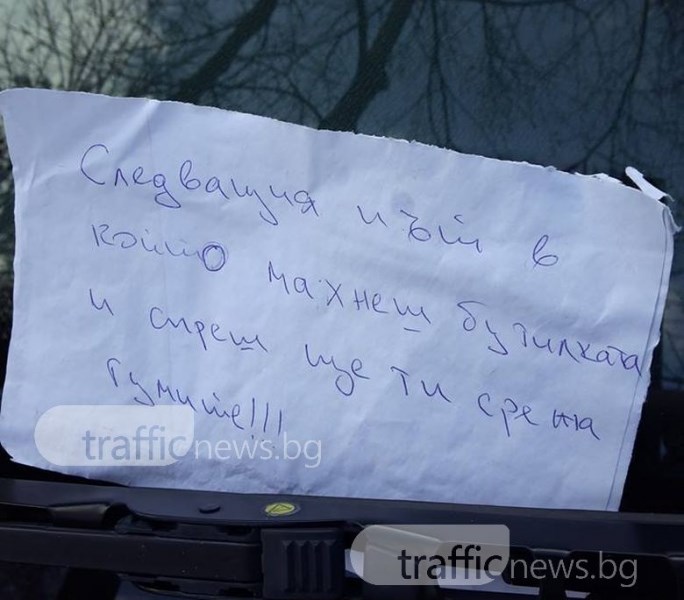 Следващия път в
който махнеш бутилката
и спреш ще ти срежа
гумите!!!
trafficnews.bg
trafficnews.bg